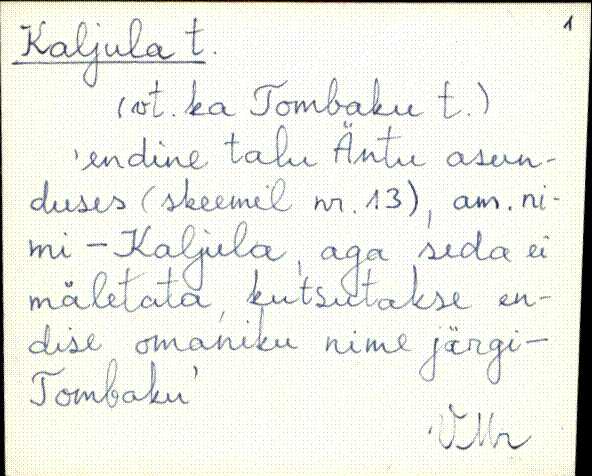 1
Kaljula t.
(vt. ka Tombaku t.)
'endine talu Äntu asun-
duses (skeemil nr. 13), am. ni-
mi - Kaljula, aga seda ei
mäletata, kutsutakse en-
dise omaniku nime järgi -
Tombaku'
VMr